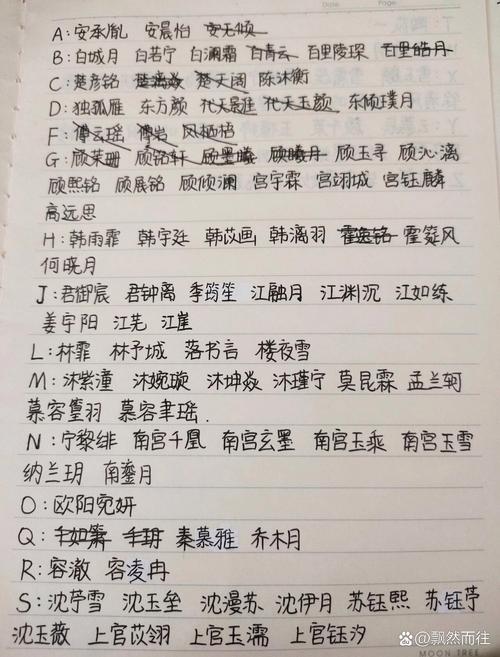 A:安承胤 安晨怡 安无倾
B:白城月 白若宁 白澜霜 百青云 百里陵琛 百里皓月
C:楚彦铭 楚天阔 陈沐衡
D:独孤雁 东方颜 代天晟 代天玉颜 东倾璞月
F:傅云瑶 傅岩 风栖梧
G:顾茉珊 顾铭轩 顾墨曦 顾曦月 顾玉寻 顾沁漓
顾熙铭 顾展铭 顾倾澜 宫宇霖 宫翊城 宫钰麟
高远思
H:韩雨霏 韩宇廷 韩苡画 韩漓羽 霍逸铭 霍筵风
何晓月
J:君御宸 君钟离 季筠笙 江融月 江渊沉 江如练
姜宇阳 江芜 江崖
L:林霏 林予城 落书言 楼夜雪
M:沐紫潼 沐婉璇 沐坤焱 沐瑾宁 莫昆霖 孟兰轲
慕容篁羽 慕容聿瑶
N:宁黎绯 南宫千凰 南宫玄墨 南宫玉乘 南宫玉雪
纳兰玥 南鎏月
O:欧阳宛妍
Q:秦慕雅 乔木月
R:容澈 容凌冉
S:沈芧雪 沈玉垒 沈漫苏 沈伊月 苏钰熙 苏钰芧
沈玉薇 上官苡翎 上官玉濡 上官钰汐
百度@飘然而往
MOON TREE